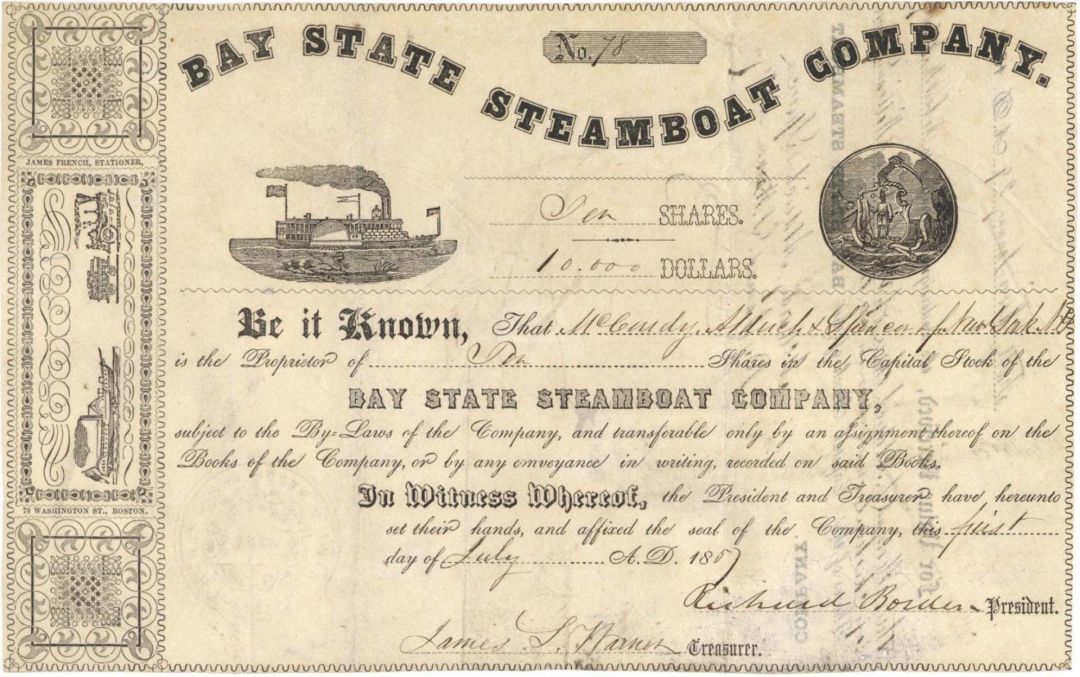 BAY STATE STEAMBOAT COMPANY.
No. 78
JAMES FRENCH, STATIONER,
78 WASHINGTON ST., BOSTON.
Ten SHARES.
10.000 DOLLARS.
Be it Known, That McCurdy, Aldrich & Spencer of New York
is the Proprietor of Ten Shares in the Capital Stock of the
BAY STATE STEAMBOAT COMPANY,
subject to the By-Laws of the Company, and transferable only by an assignment thereof on the
Books of the Company, or by any conveyance in writing, recorded on said Books.
In Witness Whereof, the President and Treasurer have hereunto
set their hands, and affixed the seal of the Company, this first
day of July A.D. 1857
Richard Borden President.
James S. Warner Treasurer.